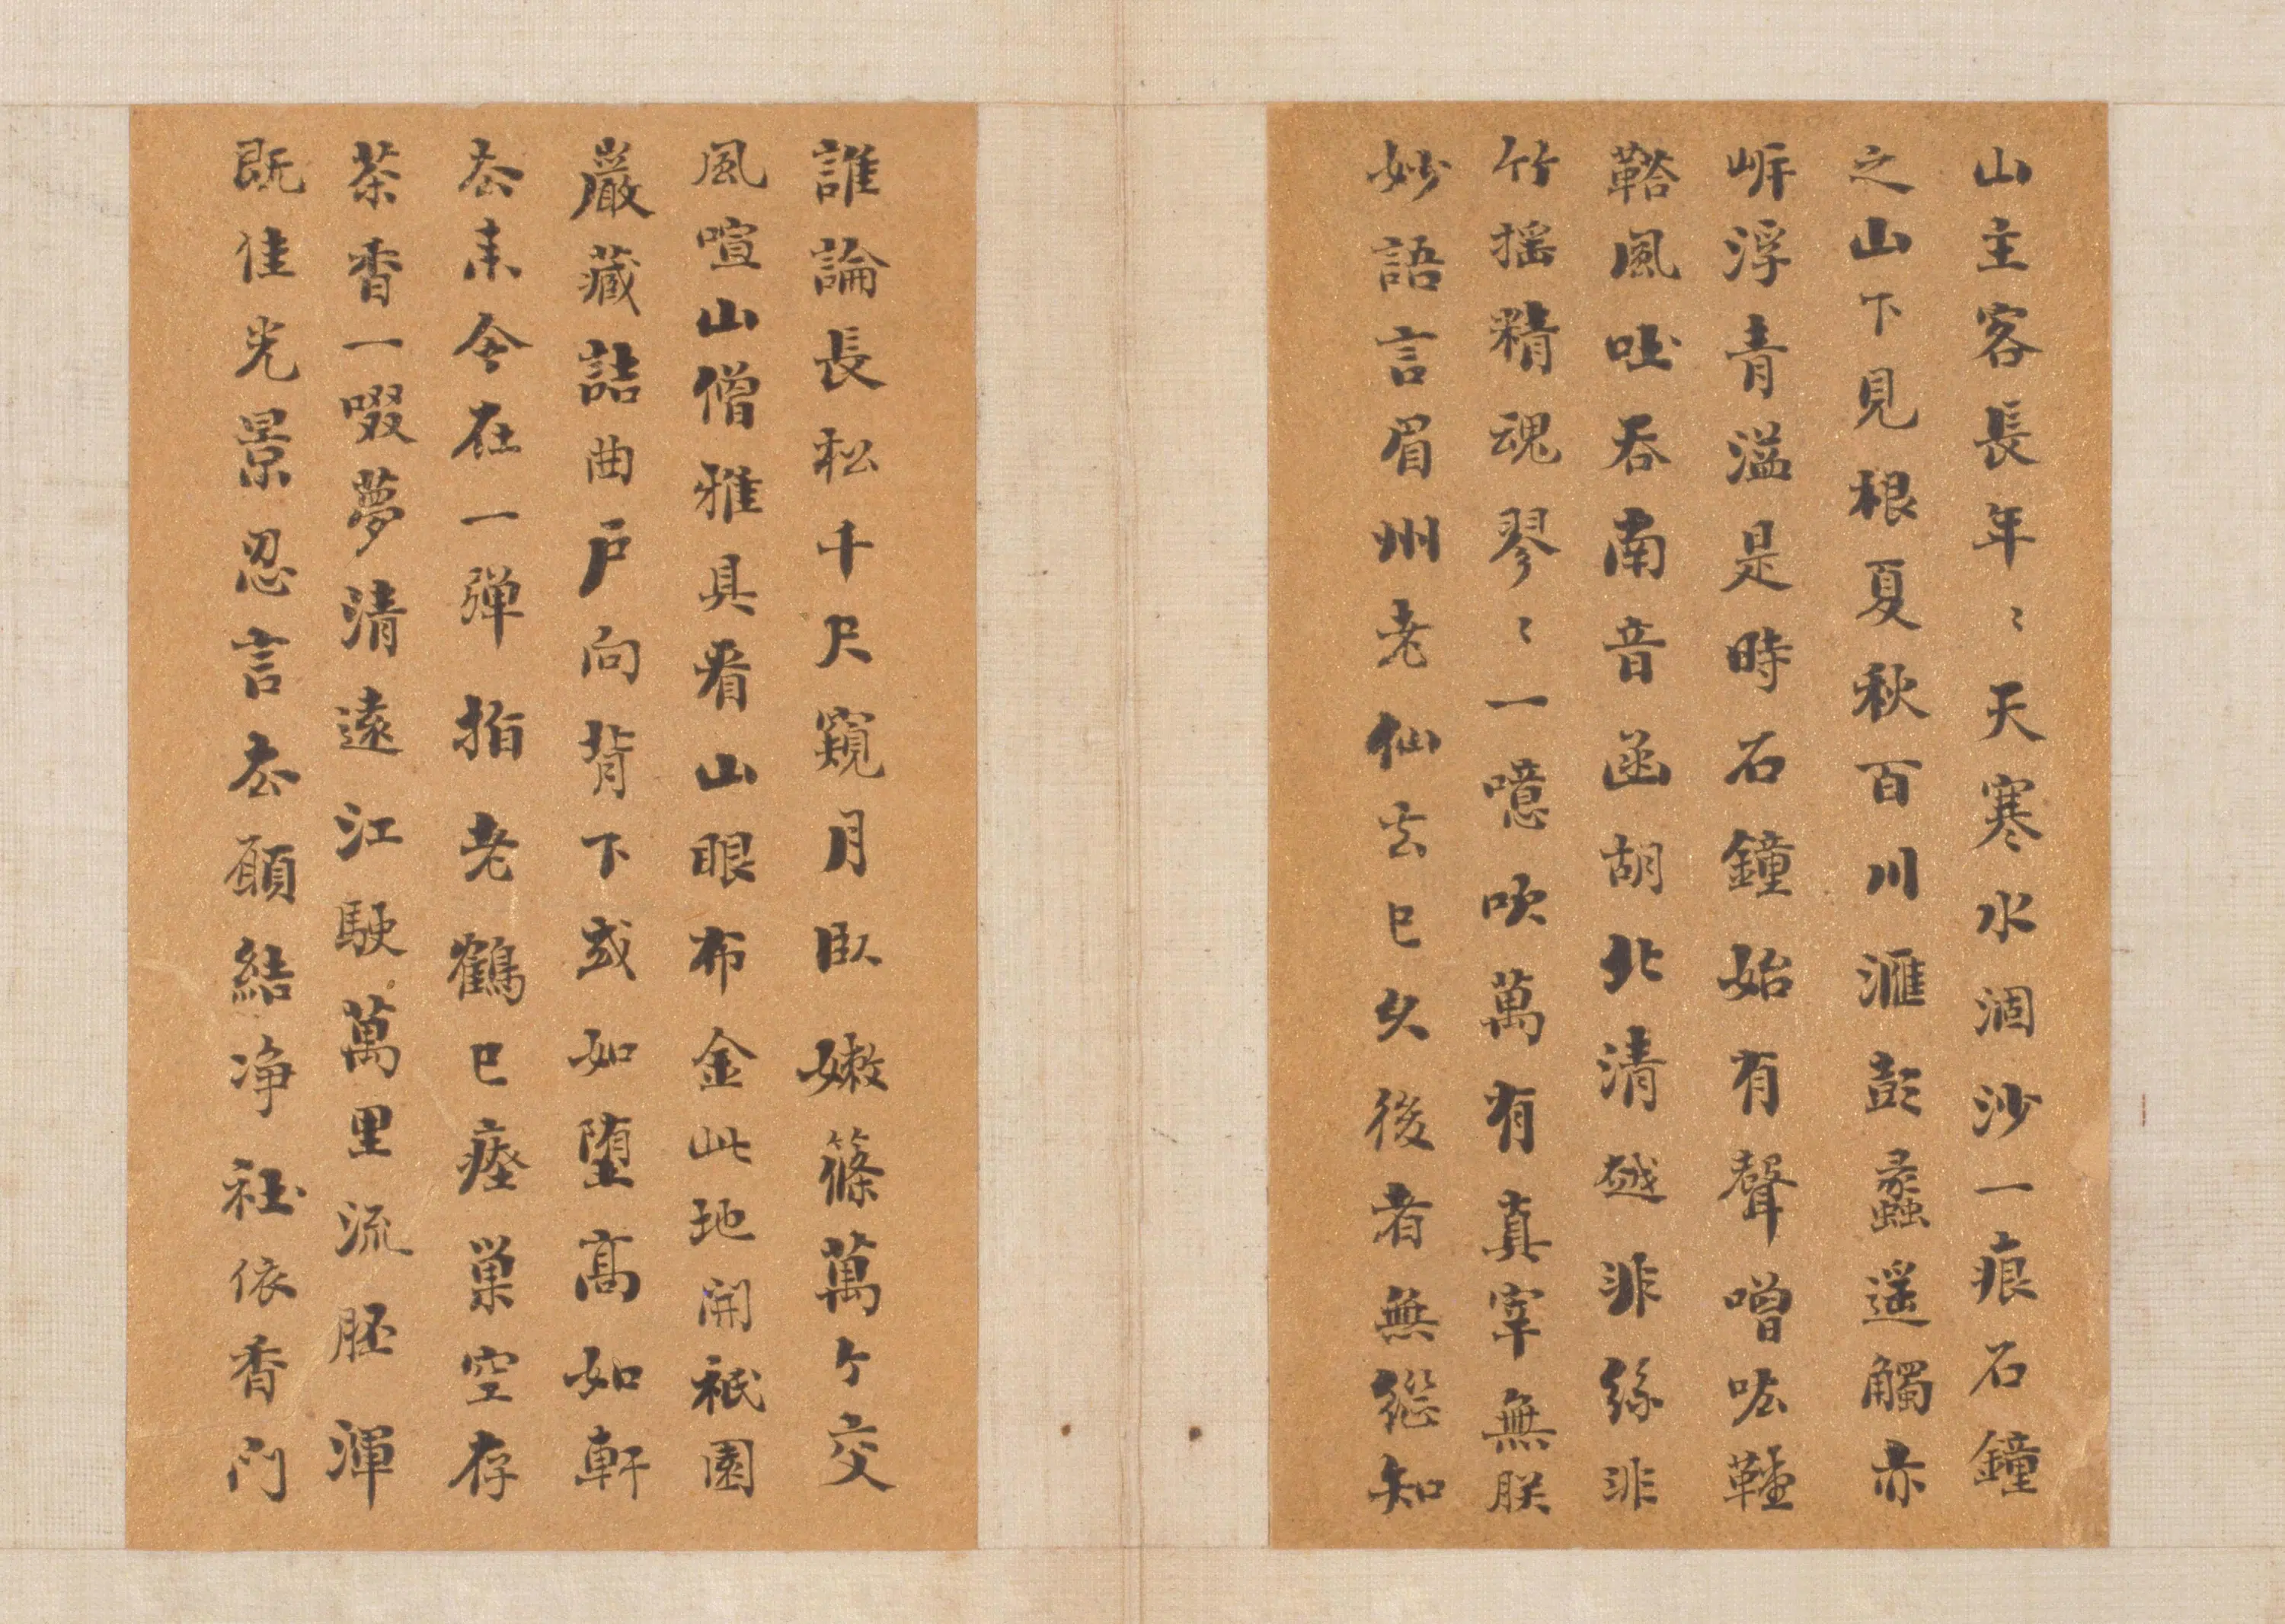 山主客長年〻天寒水涸沙一痕石鐘
之山下見根夏秋百川滙彭蠡遥觸赤
岸浮青溢是時石鐘始有聲噌吰鞺
鞳風吐吞南音函胡北清越非絲非
竹揺精魂翏〻一噫吹萬有真宰無朕
妙語言眉州老仙去已久後者無繇知
誰論長松千尺窺月臥嫩篠萬个交
風喧山僧雅具看山眼布金此地開祇園
巖藏詰曲戶向背下或如墮高如軒
厺来今在一弹指老鶴已瘞巢空存
茶香一啜夢清遠江駛萬里流胚渾
既佳光景忍言厺願結净社依香門